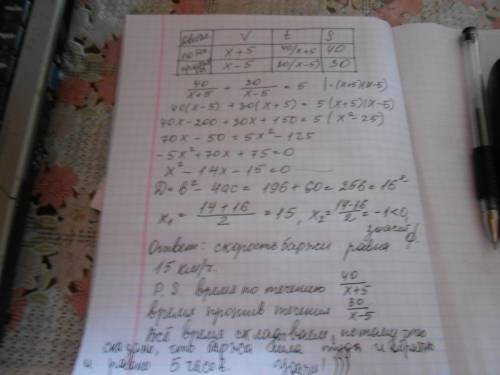 V t S
по теч. x+5 40/x+5 40
против теч. x-5 30/x-5 30
40/x+5 + 30/x-5 = 5 |·(x+5)(x-5)
40(x-5) + 30(x+5) = 5(x+5)(x-5)
40x-200+30x+150=5(x²-25)
70x-50=5x²-125
-5x²+70x+75=0
x²-14x-15=0
D=b²-4ac=196+60=256=16²
x₁=14+16/2=15, x₂=14-16/2=-1<0,
значит
Ответ: скорость баржи равна
15 км/ч.
P.S. время по течению 40/x+5
время против течения 30/x-5
Всё время складываем, потому что
сказано, что баржа шла туда и обратно
и равно 5 часов. Удачи!)))